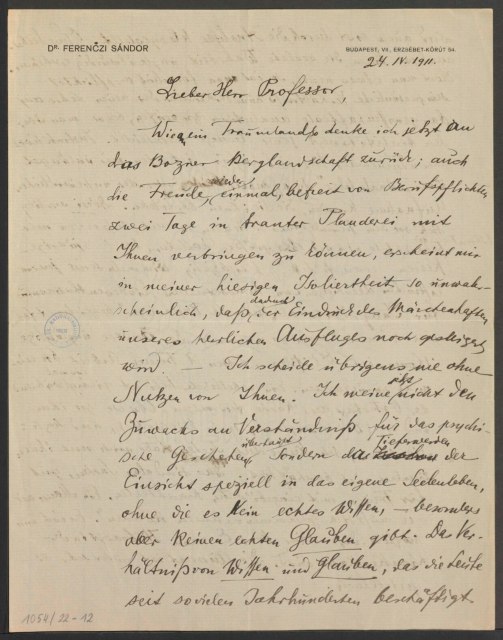 Dr. FERENCZI SÁNDOR
BUDAPEST, VII, ERZSÉBET-KÖRÚT 54.
24. IV. 1911.
Lieber Herr Professor,
Wie ein Traumland denke ich jetzt an
das Bozner Berglandschaft zurück; auch
die Freude, wieder einmal, befreit von Berufspflichten
zwei Tage in trauter Plauderei mit
Ihnen verbringen zu können, erscheint mir
in meiner hiesigen Isoliertheit so unwahr-
scheinlich, daß dadurch der Eindruck des Märchenhaften
unseres herrlichen Ausfluges noch gesteigert
wird. — Ich scheide übrigens nie ohne
Nutzen von Ihnen. Ich meine nicht den
Zuwachs an Verständniß für das psychi-
sche Geschehen überhaupt, sondern das Tieferwerden der
Einsicht speziell in das eigene Seelenleben,
ohne die es kein echtes Wissen, — besonders
aber keinen echten Glauben gibt. Das Ver-
hältniß von Wissen und Glauben, das die Leute
seit sovielen Jahrhunderten beschäftigt
1054/22-12